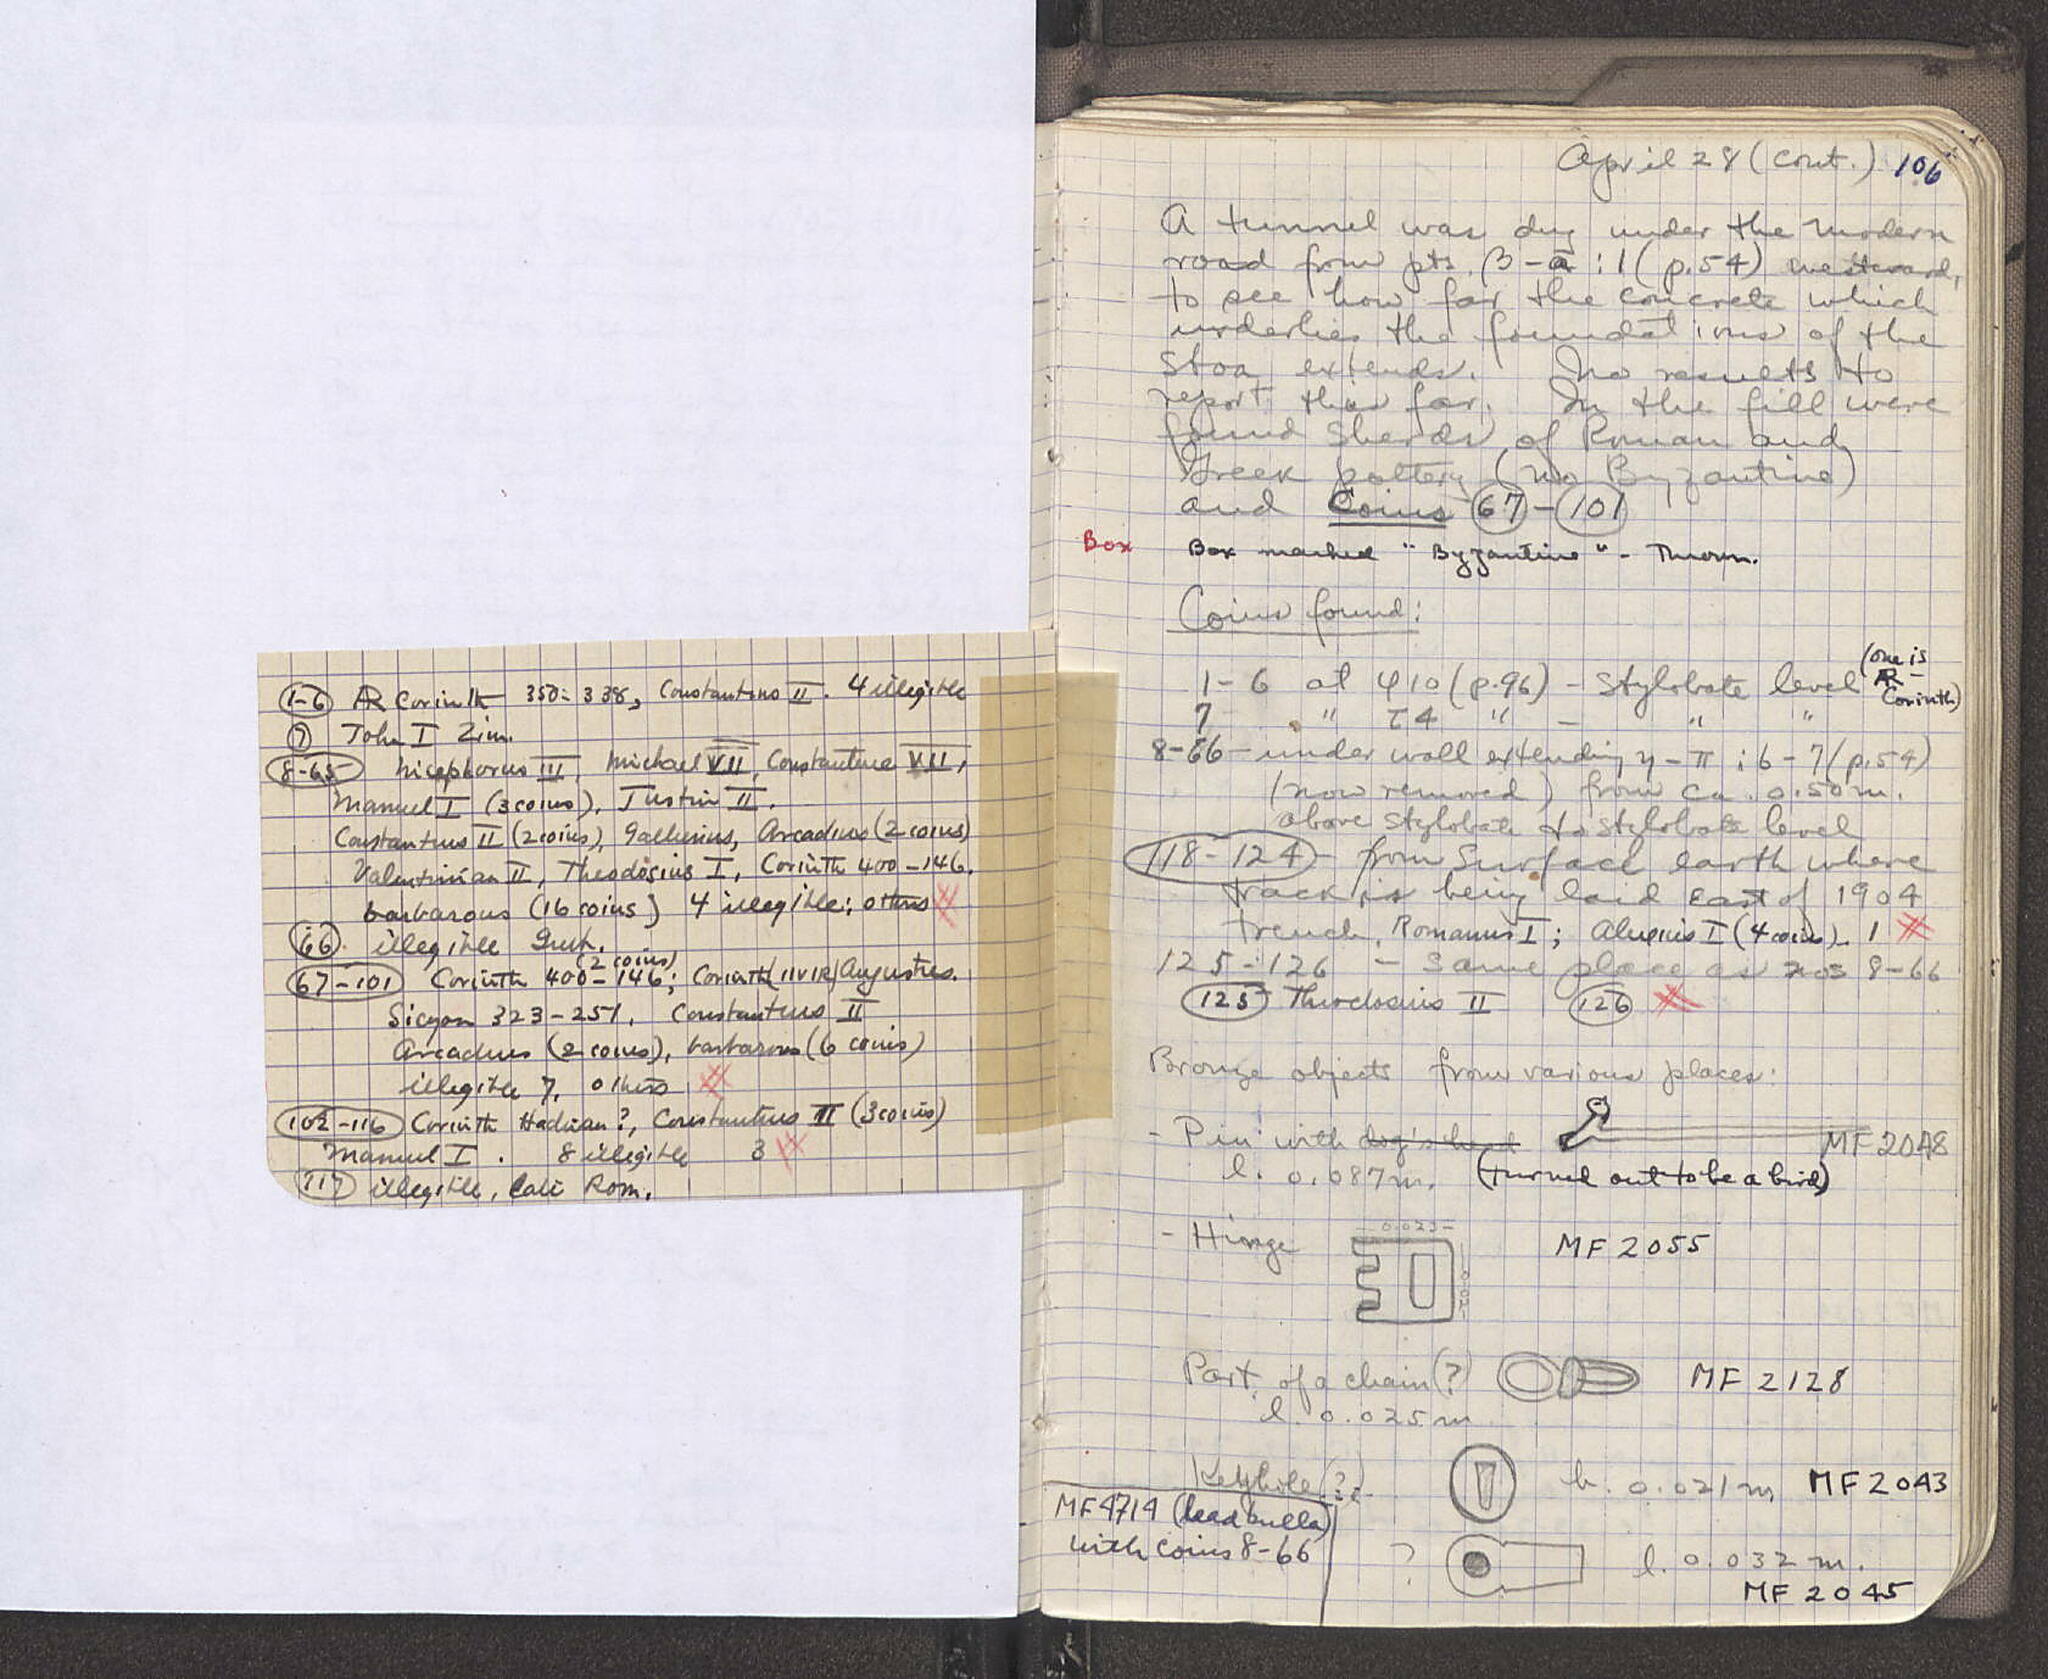 1-6 AR Corinth 350-338, Constantius II. 4 illegible
7 John I Zim.
8-65 Nicephorus III, Michael VII, Constantine VII,
Manuel I (3 coins), Justin II.
Constantius II (2 coins), Gallienus, Arcadius (2 coins)
Valentinian II, Theodosius I, Corinth 400-146.
barbarous (16 coins) 4 illegible; others
66. illegible Greek.
(2 coins)
67-101 Corinth 400-146; Corinth (IIVIR) Augustus.
Sicyon 323-251, Constantius II
Arcadius (2 coins), barbarous (6 coins)
illegible 7, others
102-116 Corinth Hadrian?, Constantius II (3 coins)
Manuel I. 8 illegible 3
117 illegible, Late Rom.
April 28 (cont.) 106
A tunnel was dug under the modern
road from pts. β-a : 1 (p.54) westward,
to see how far the concrete which
underlies the foundations of the
Stoa extends. No results to
report thus far. In the fill were
found sherds of Roman and
Greek pottery (no Byzantine)
and Coins 67-101
Box Box marked "Byzantine" - Thrown.
Coins found:
1-6 at φ10 (p.96) - Stylobate level (one is AR - Corinth)
7 " τ4 " - " "
8-66 - under wall extending η-π : 6-7 (p.54)
(now removed) from ca. 0.50 m.
above stylobate to stylobate level
118-124 - from surface earth where
track is being laid East of 1904
trench. Romanus I; Alexius I (4 coins). 1
125-126 - same place as nos 8-66
125 Theodosius II 126
Bronze objects from various places:
- Pin with dog's head MF 2048
l. 0.087 m. (turned out to be a bird)
0.023
- Hinge MF 2055
Part of a chain (?) MF 2128
l. 0.025 m
Keyhole (?) h. 0.021 m MF 2043
MF 4714 (lead bulla)
with coins 8-66
? l. 0.032 m.
MF 2045